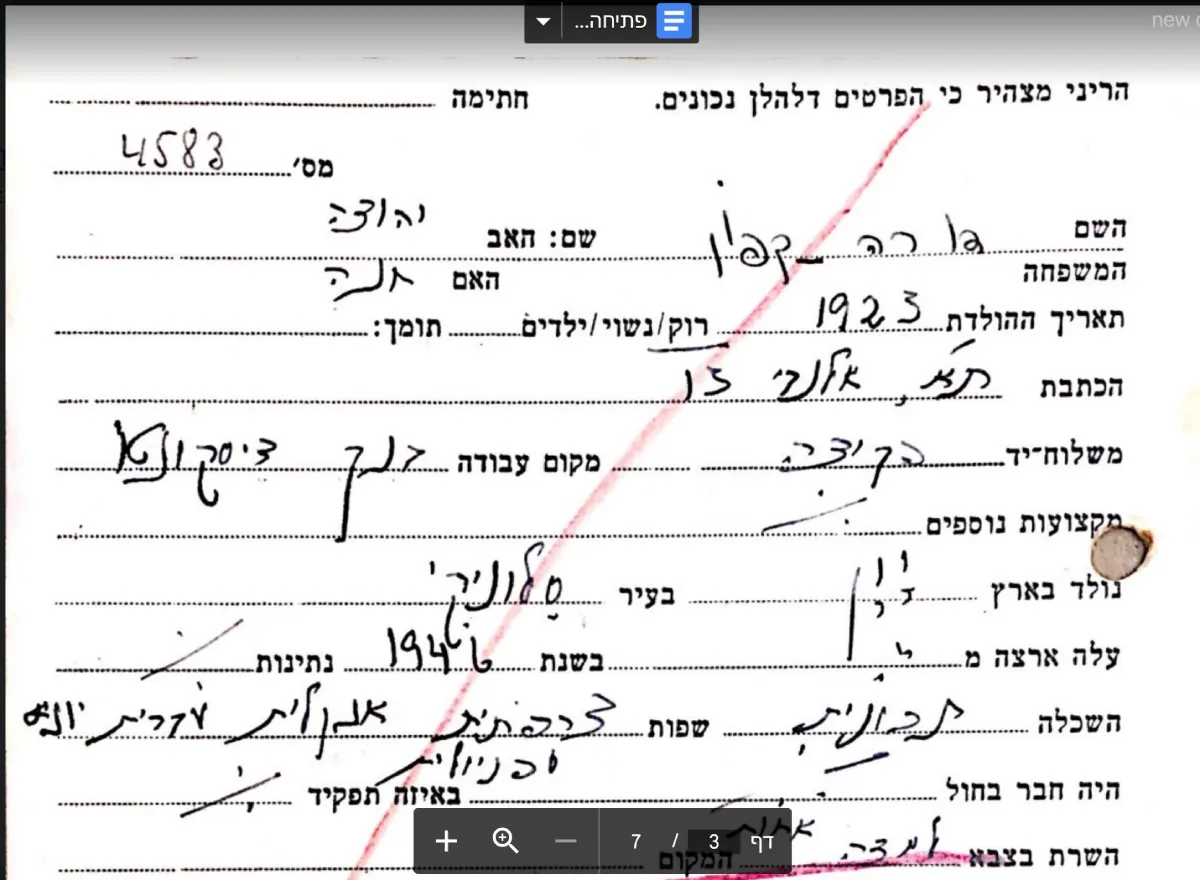 פתיחה...
new
הריני מצהיר כי הפרטים דלהלן נכונים. חתימה
מס' 4583
השם דורה קפון שם: האב יהודה
המשפחה האם חנה
תאריך ההולדת 1923 רוק/נשוי/ילדים תומך:
הכתבת ת"א, אלנבי
משלוח-יד פקידה מקום עבודה בנק דיסקונט
מקצועות נוספים
נולד בארץ יון בעיר סלוניקי
עלה ארצה מ בשנת 194 נתינות
השכלה תכונית שפות צרפתית אנגלית עברית
ספניולית
היה חבר בחול באיזה תפקיד
השרת בצבא המקום
דף 3 / 7